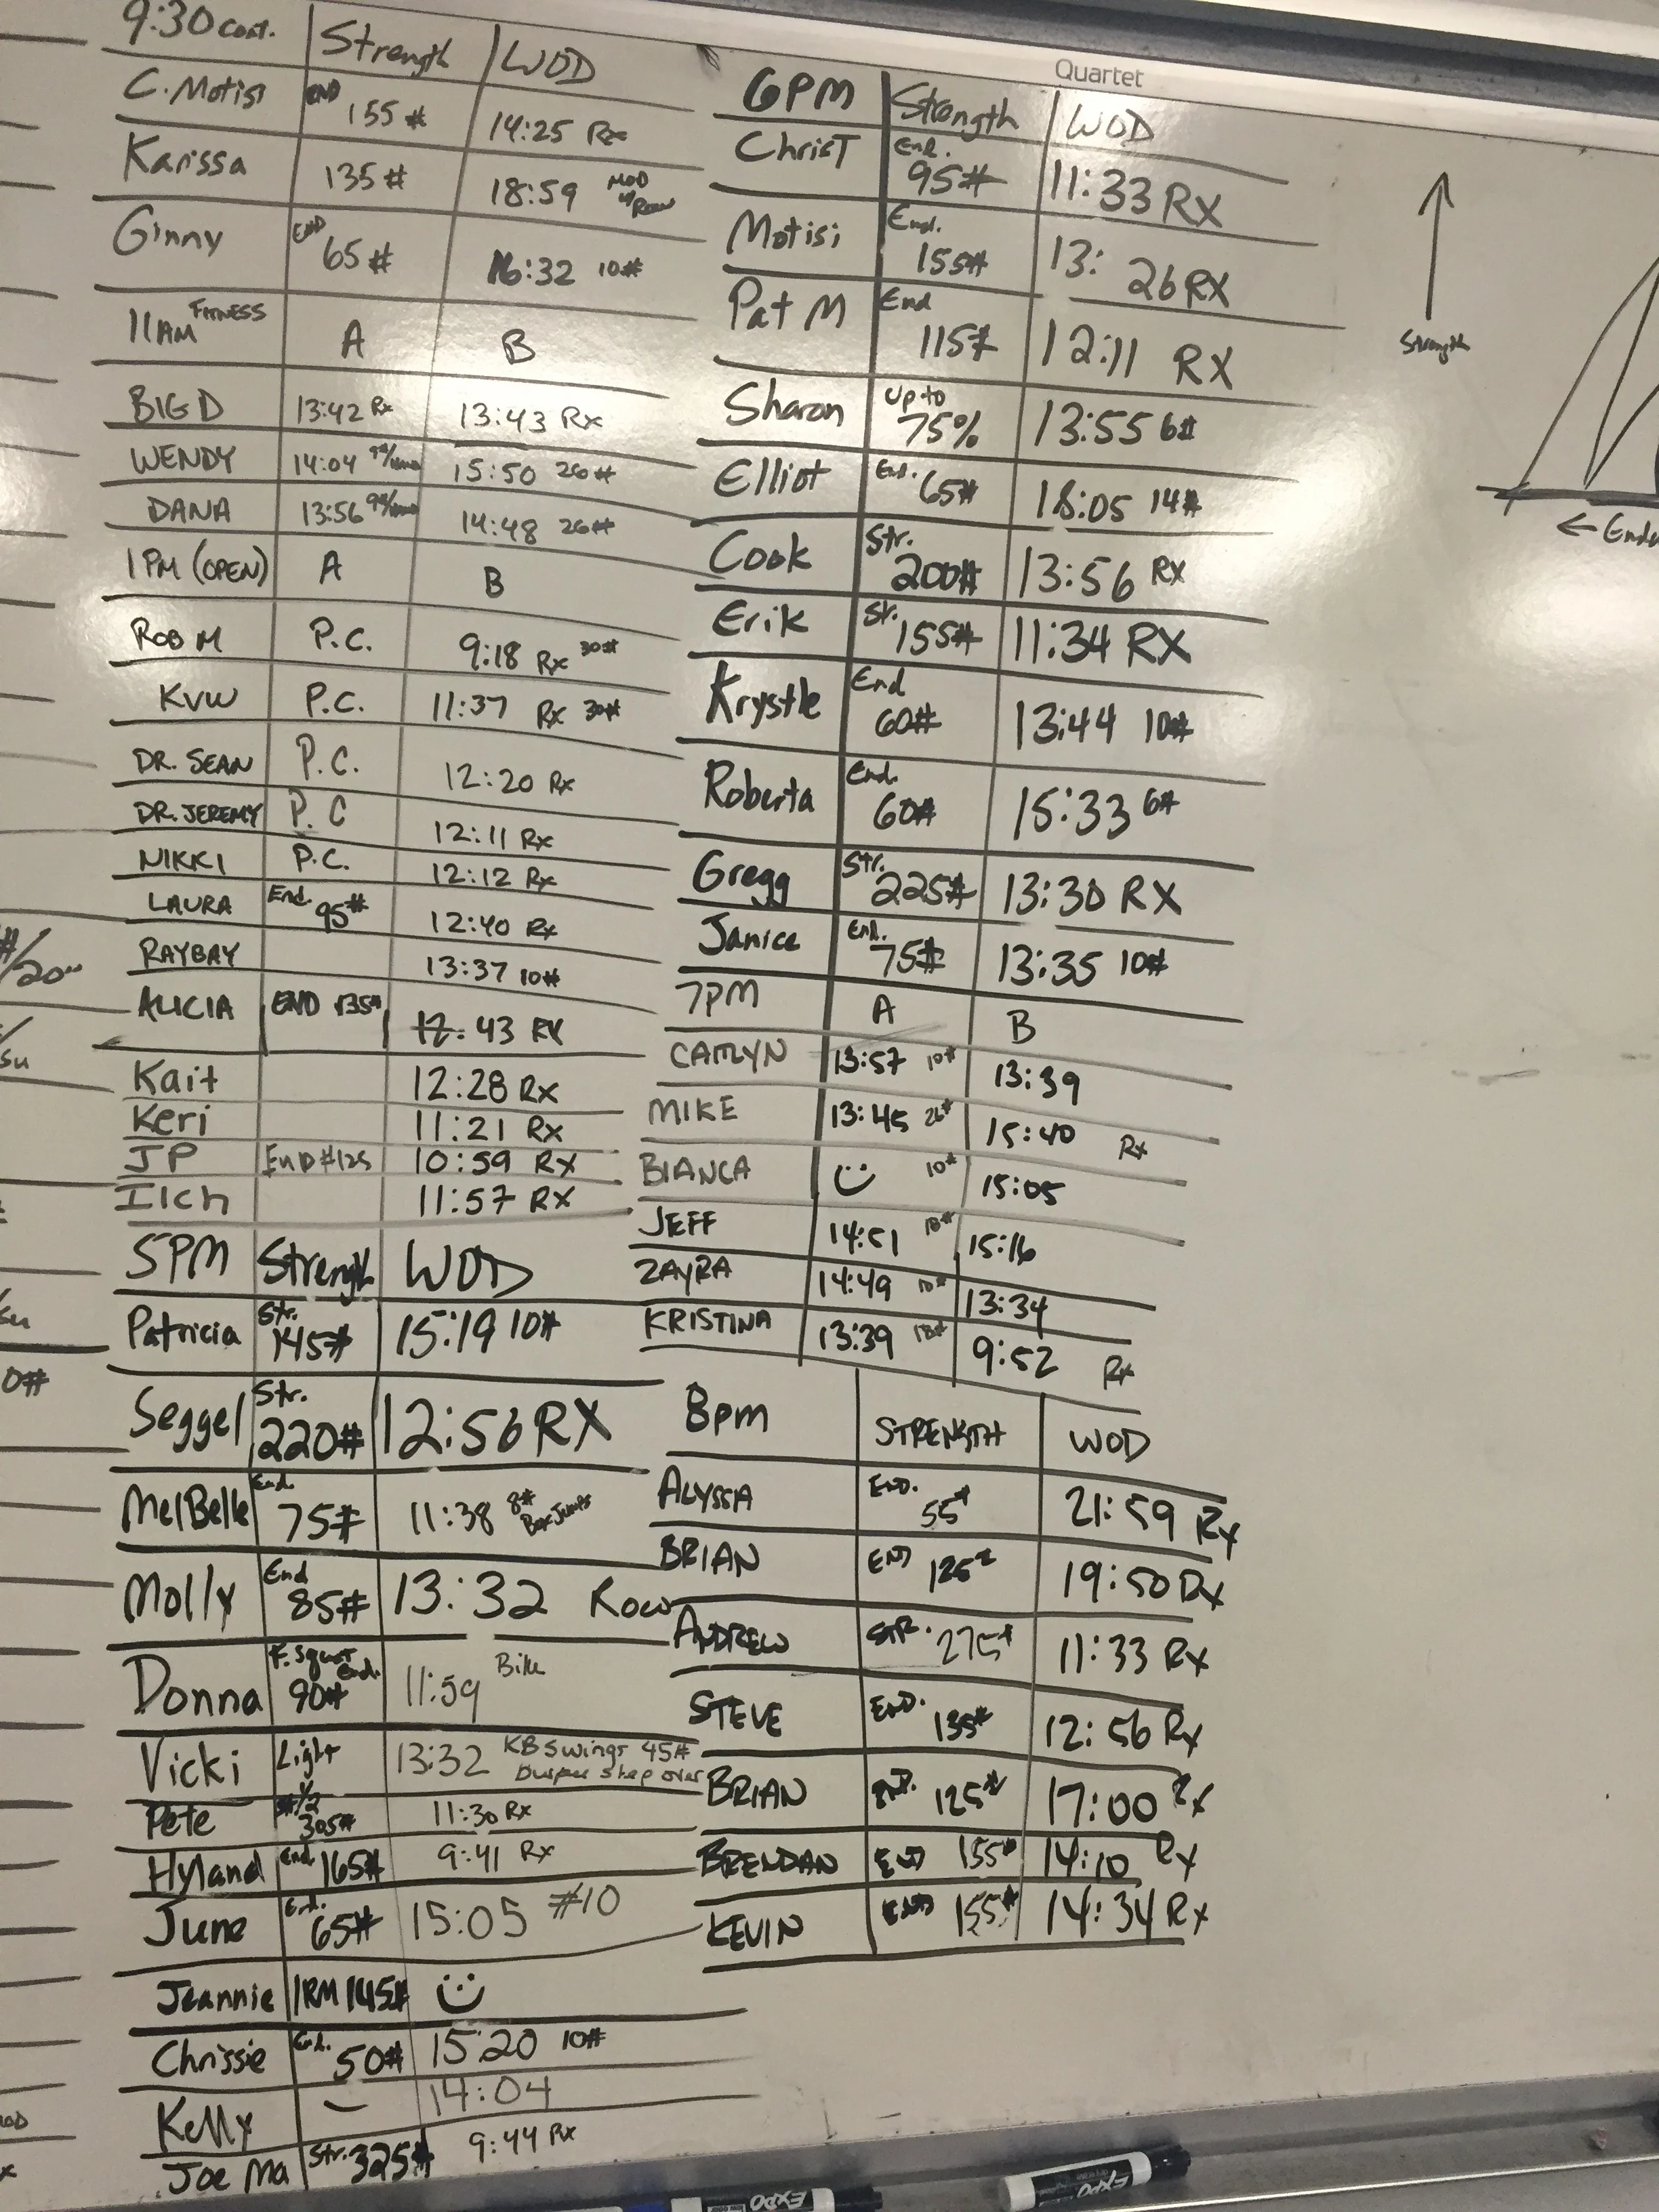 9:30 cont. Strength WOD
C. Motisi END 155# 14:25 Rx
Karissa 135# 18:59 MOD w/Row
Ginny END 65# 16:32 10#
11AM FITNESS A B
BIG D 13:42 Rx 13:43 Rx
WENDY 14:04 15:50 26#
DANA 13:56 14:48 26#
1PM (OPEN) A B
ROB M P.C. 9:18 Rx 30#
KVW P.C. 11:37 Rx 30#
DR. SEAN P.C. 12:20 Rx
DR. JEREMY P.C 12:11 Rx
NIKKI P.C. 12:12 Rx
LAURA End. 95# 12:40 Rx
RAYBAY 13:37 10#
ALICIA END 135# 12:43 RX
Kait 12:28 Rx
Keri 11:21 Rx
JP END #125 10:59 Rx
Ilch 11:57 Rx
5PM Strength WOD
Patricia Str. 145# 15:19 10#
Seggel Str. 220# 12:56 RX
MelBelle End. 75# 11:38 8# Box Jumps
Molly End 85# 13:32 Row
Donna F. Squat End. 90# 11:59 Bike
Vicki Light 13:32 KB Swings 45# Burpee step over
Pete 305# 11:30 Rx
Hyland End. 165# 9:41 Rx
June End. 65# 15:05 #10
Jeannie 1RM 145#
Chrissie End. 50# 15:20 10#
Kelly – 14:04
Joe Ma Str. 325# 9:44 Rx
Quartet
6PM Strength WOD
ChrisT End. 95# 11:33 RX
Motisi End. 155# 13:26 RX
Pat M End 115# 12:11 RX
Sharon Up to 75% 13:55 6#
Elliot End. 65# 18:05 14#
Cook Str. 200# 13:56 RX
Erik Str. 155# 11:34 RX
Krystle End 60# 13:44 10#
Roberta End. 60# 15:33 6#
Gregg Str. 225# 13:30 RX
Janice End. 75# 13:35 10#
7PM A B
CAITLYN 13:57 10# 13:39
MIKE 13:45 26# 15:40 Rx
BIANCA 10# 15:05
JEFF 14:51 18# 15:16
ZAYRA 14:49 10# 13:34
KRISTINA 13:39 18# 9:52 Rx
8pm STRENGTH WOD
ALYSSA END. 55# 21:59 Rx
BRIAN END 125# 19:50 Rx
ANDREW STR. 275# 11:33 Rx
STEVE END. 135# 12:56 Rx
BRIAN END. 125# 17:00 Rx
BRENDAN END 155# 14:10 Rx
KEVIN END 155# 14:34 Rx
Strength
← Endu
#/20"
/su
su
0#
EXPO
EXPO